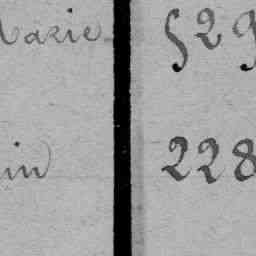 Marie 529
in 228